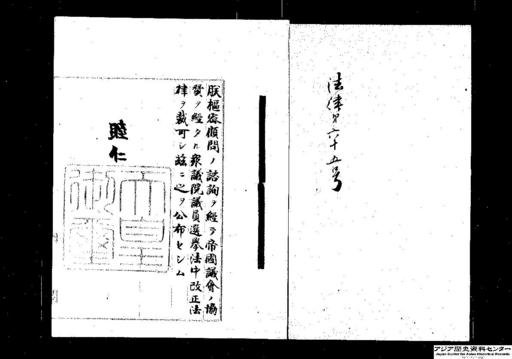 法律第六十五号
朕樞密顧問ノ諮詢ヲ經テ帝國議會ノ協
賛ヲ經タル衆議院議員選挙法中改正法
律ヲ裁可シ茲ニ之ヲ公布セシム
睦仁
天皇
御璽
アジア歴史資料センター
Japan Center for Asian Historical Records